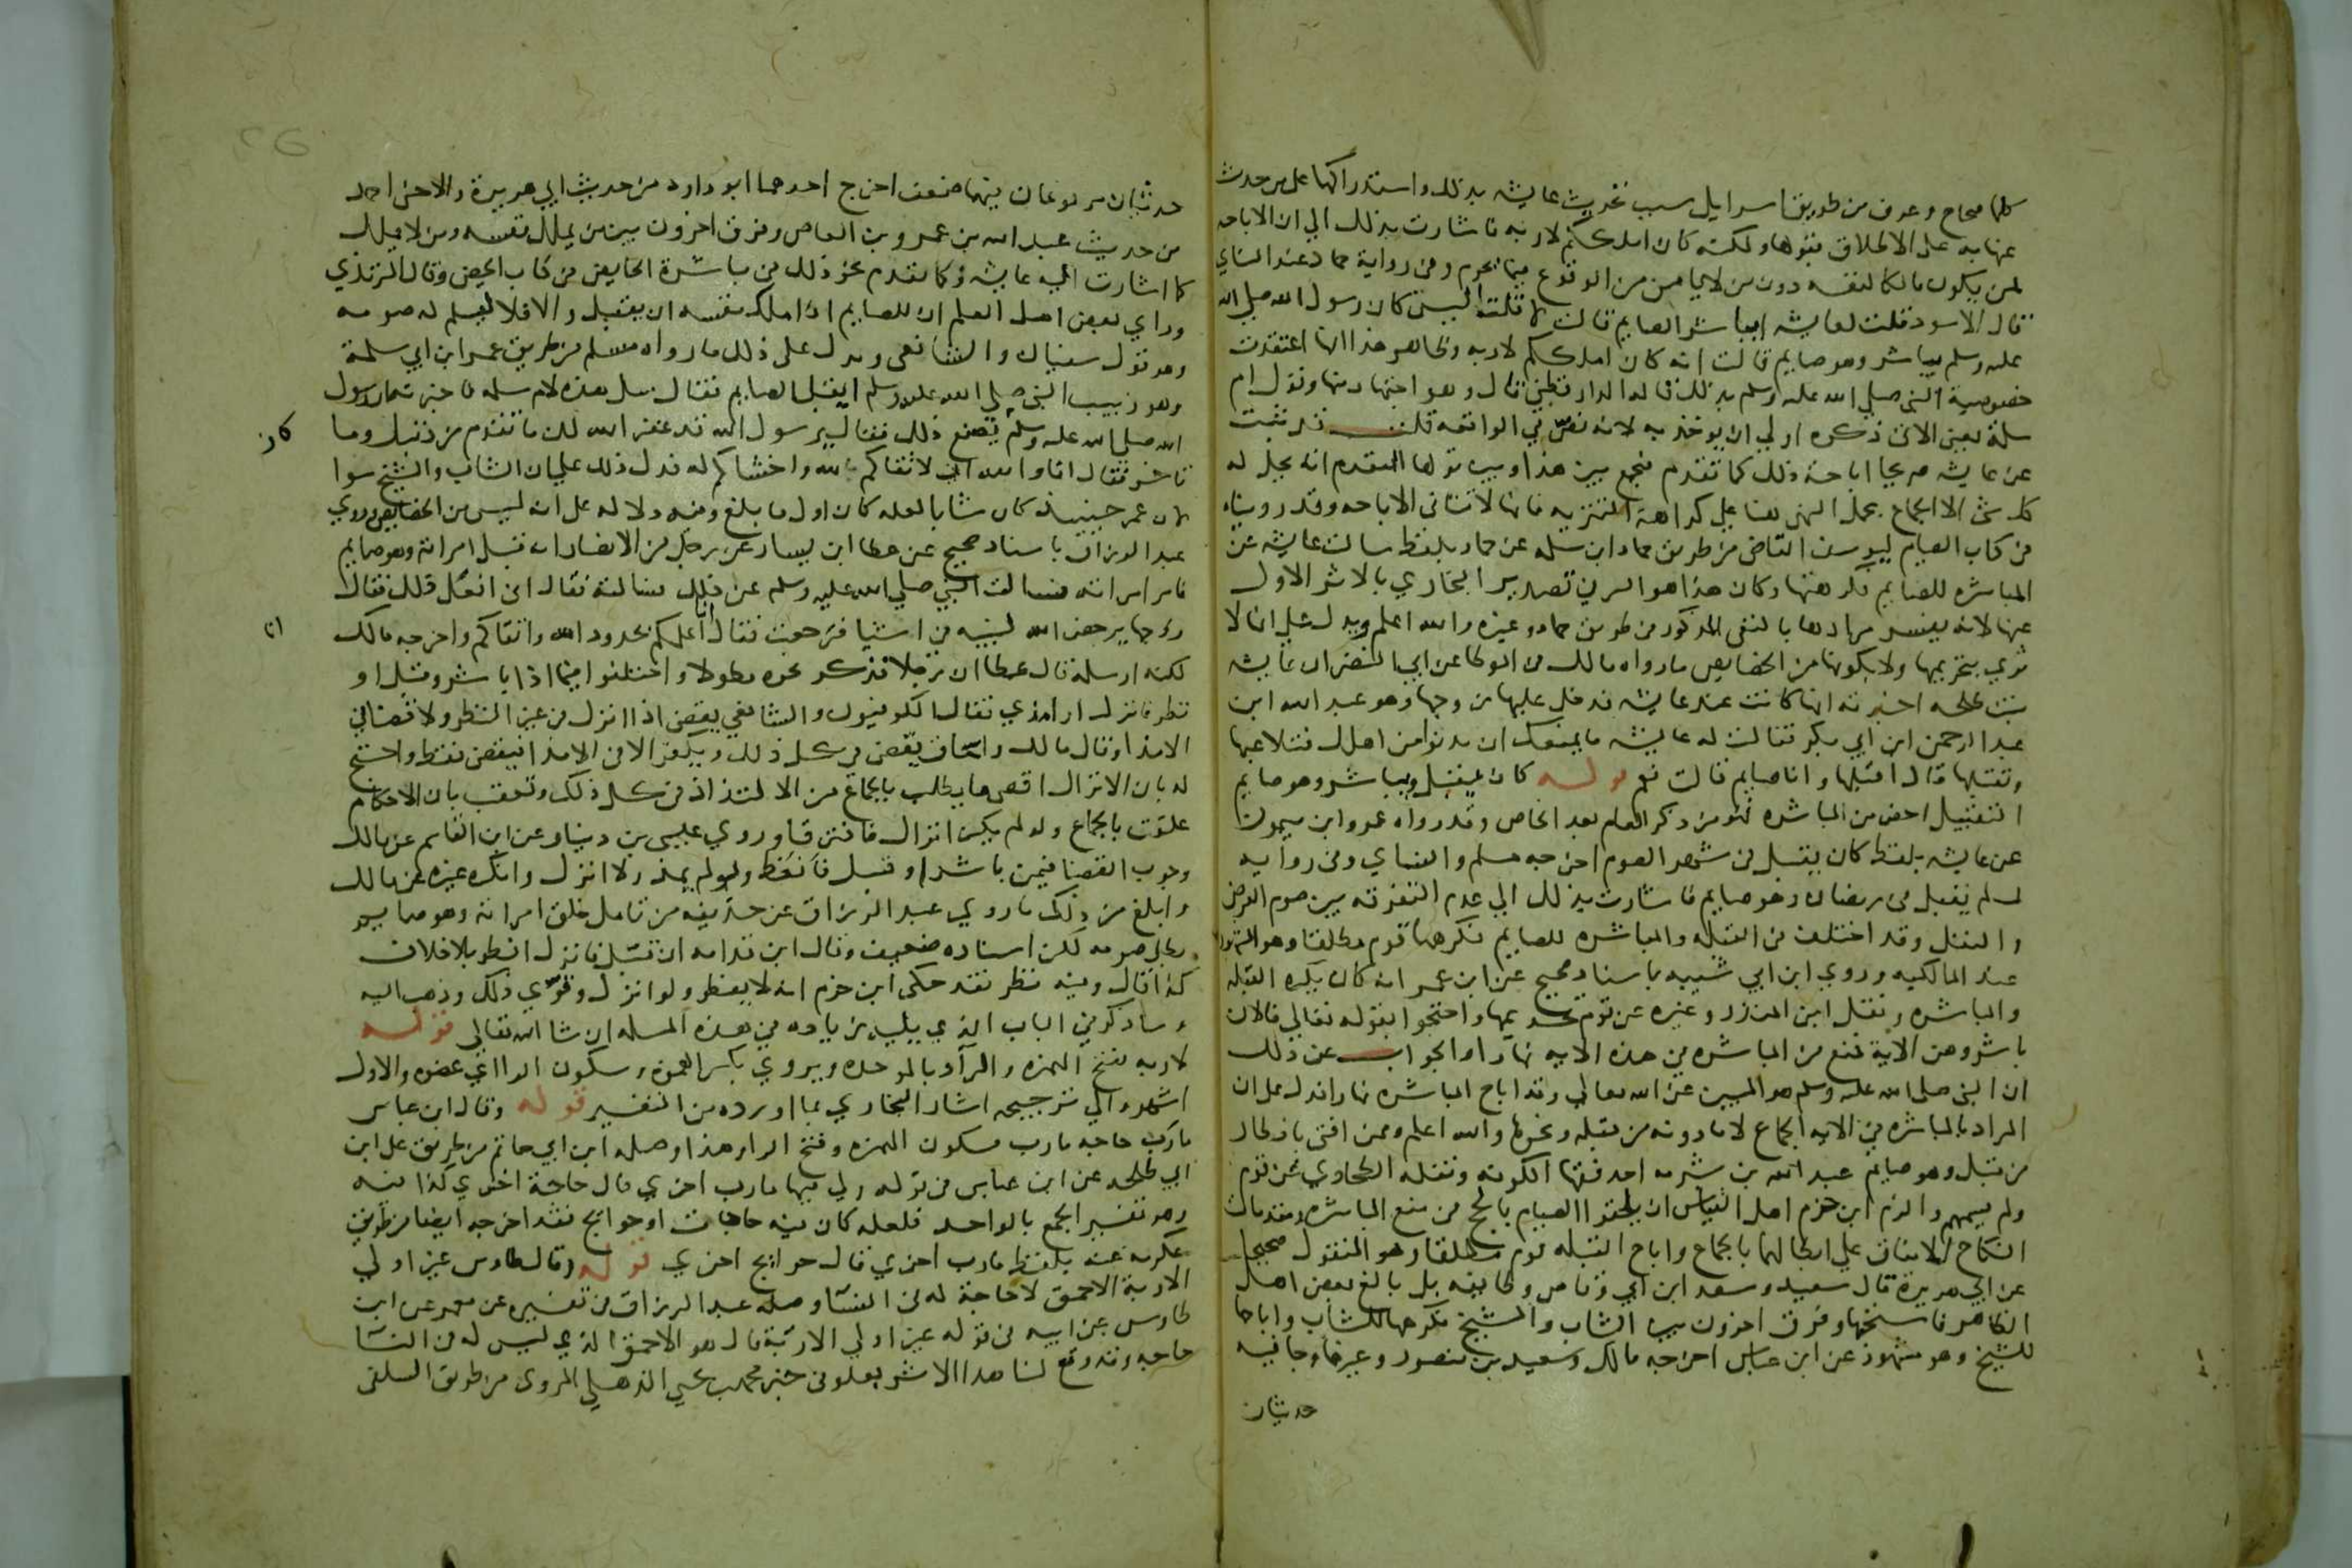 كلها صحاح وعرف من طريق اسرايل سبب تحديث عايشه بذلك واستدراكها على من حدث
عنها به على الاطلاق بقولها ولكنه كان املككم لاربه فاشارت بذلك الي ان الاباحه
لمن يكون مالكا لنفسه دون من لا يامن من الوقوع فيما يحرم وفي رواية حماد عند النساي
قال الاسود قلت لعايشه ايباشر الصايم قالت لا قلت اليس كان رسول الله صلي الله
عليه وسلم يباشر وهو صايم قالت انه كان املككم لاربه وظاهر هذا انها اعتقدت
خصوصية النبي صلي الله عليه وسلم بذلك قاله القرطبي قال وهو اجتهاد منها وقول ام
سلمة يعني الاتي ذكره اولي ان يوخذ به لانه نص في الواقعه قلت قد ثبت
عن عايشه صريحا اباحة ذلك كما تقدم فيجمع بين هذا وبين قولها المتقدم انه يحل له
كل شي الا الجماع بحمل النهي هنا علي كراهة التنزيه فانها لا تنافي الاباحه وقد روينا
في كتاب الصيام ليوسف القاضي من طريق حماد ابن سلمه عن حماد بلفظ سالت عايشه عن
المباشره للصايم فكرهتها وكان هذا هو السر في تصدير البخاري بالاثر الاول
عنها لانه يفسر مرادها بالنفي المذكور من طريق حماد وغيره والله اعلم ويدل علي انها لا
تري بتحريمها ولا بكونها من الخصايص ما رواه مالك في الموطا عن ابي النضر ان عايشه
بنت طلحه اخبرته انها كانت عند عايشه فدخل عليها زوجها وهو عبد الله ابن
عبد الرحمن ابن ابي بكر فقالت له عايشه ما يمنعك ان تدنوا من اهلك فتلاعبها
وتقبلها قال اقبلها وانا صايم قالت نعم قوله كان يقبل ويباشر وهو صايم
التقبيل اخص من المباشره فهو من ذكر العام بعد الخاص وقد رواه عمرو ابن ميمون
عن عايشه بلفظ كان يقبل في شهر الصوم اخرجه مسلم والنساي وفي روايه
لمسلم يقبل في رمضان وهو صايم فاشارت بذلك الي عدم التفرقه بين صوم الفرض
والنفل وقد اختلف في القبله والمباشره للصايم فكرهها قوم مطلقا وهو المشهور
عند المالكيه وروي ابن ابي شيبه باسناد صحيح عن ابن عمر انه كان يكره القبله
والمباشره ونقل ابن المنذر وغيره عن قوم تحريمها واحتجوا بقوله تعالي فالان
باشروهن الاية فمنع من المباشره في هذه الايه نهارا والجواب عن ذلك
ان النبي صلى الله عليه وسلم هو المبين عن الله تعالي وقد اباح المباشره نهارا فدل على ان
المراد بالمباشره في الايه الجماع لا ما دونه من قبله ونحوها والله اعلم وممن افتي بافطار
من قبل وهو صايم عبد الله بن شبرمه احد فقها الكوفه ونقله الطحاوي عن قوم
ولم يسمهم والزم ابن حزم اهل القياس ان يلحقوا الصيام بالحج في منع المباشره ومقدمات
النكاح للاتفاق علي ابطالهما بالجماع واباح القبله قوم مطلقا وهو المنقول صحيحا
عن ابي هريرة قال سعيد وسعد ابن ابي وقاص وطايفه بل بالغ بعض اهل
الظاهر فاستحبها وفرق اخرون بين الشاب والشيخ فكرهها للشاب واباحها
للشيخ وهو مشهور عن ابن عباس اخرجه مالك وسعيد بن منصور وغيرها وجا فيه
حديثان
حديثان مرفوعان فيهما ضعف اخرج احدهما ابو داود من حديث ابي هريرة والاخر احمد
من حديث عبد الله بن عمرو بن العاص وفرق اخرون بين من يملك نفسه ومن لا يملك
كما اشارت اليه عايشه وكما تقدم نحو ذلك في مباشرة الحايض في كتاب الحيض وقال الترمذي
وراي بعض اهل العلم ان للصايم اذا ملك نفسه ان يقبل والا فلا ليسلم له صومه
وهو قول سفيان والشافعي ويدل على ذلك ما رواه مسلم من طريق عمر ابن ابي سلمة
وهو ربيب النبي صلي الله عليه وسلم ايقبل الصايم فقال سل هذه لام سلمه فاخبرته ان رسول
الله صلى الله عليه وسلم يصنع ذلك فقال يرسول الله قد غفر الله لك ما تقدم من ذنبك وما
كان
تاخر فقال اما والله اني لاتقاكم لله واخشاكم له فدل ذلك علي ان الشاب والشيخ سوا
لان عمر حينيذ كان شابا لعله كان اول ما بلغ وفيه دلاله على انه ليس من الخصايص وروي
عبد الرزاق باسناد صحيح عن عطا ابن يسار عن رجل من الانصار انه قبل امراته وهو صايم
فامر امراته فسالت النبي صلي الله عليه وسلم عن ذلك فسالته فقال اني افعل ذلك فقال
زوجها يرخص الله لنبيه في اشيا فرجعت فقال انا اعلمكم بحدود الله واتقاكم واخرجه مالك
انا
لكنه ارسله قال عطا ان رجلا فذكر نحوه مطولا واختلفوا فيما اذا باشر وقبل او
نظر فانزل او امذي فقال الكوفيون والشافعي يقضي اذا انزل في غير النظر ولا قضا في
الامذا وقال مالك واسحاق يقضي في كل ذلك ويكفر الا في الامذا فيقضي فقط واحتج
له بان الانزال اقصى ما يطلب بالجماع من الالتذاذ في كل ذلك وتعقب بان الاحكام
علقت بالجماع ولو لم يكن انزال فافترقا وروي عيسى بن دينار عن ابن القاسم عن مالك
وجوب القضا فيمن باشر او قبل فانعظ ولو لم يمذ ولا انزل وانكره غيره عن مالك
وابلغ من ذلك ما روي عبد الرزاق عن حذيفه من تامل خلق امراته وهو صايم
بطل صومه لكن اسناده ضعيف وقال ابن قدامه ان قبل فانزل افطر بلا خلاف
كذا قال وفيه نظر فقد حكى ابن حزم انه لا يفطر ولو انزل وقوي ذلك وذهب اليه
وساذكر في الباب الذي يليه زيادة في هذه المسله ان شا الله تعالي قوله
لاربه بفتح الهمزه والرا وبالموحده ويروي بكسر الهمزه وسكون الرا اي عضوه والاول
اشهر والي ترجيحه اشار البخاري بما اورده من التفسير قوله وقال ابن عباس
مارب حاجه مارب بسكون الهمزه وفتح الرا وهذا وصله ابن ابي حاتم من طريق على ابن
ابي طلحه عن ابن عباس في قوله ولي فيها مارب اخري قال حاجة اخري كذا فيه
وهو تفسير الجمع بالواحد فلعله كان فيه حاجات او حوايج فقد اخرجه ايضا من طريق
عكرمه عنه بلفظ مارب اخري قال حوايج اخري قوله وقال طاوس غير اولي
الاربة الاحمق لا حاجة له في النسا وصله عبد الرزاق في تفسيره عن معمر عن ابن
طاوس عن ابيه في قوله غير اولي الاربة قال هو الاحمق الذي ليس له في النسا
حاجه وقد وقع لنا هذا الاثر بعلو في جزء محمد بن يحيي الذهلي المروي من طريق السلفي